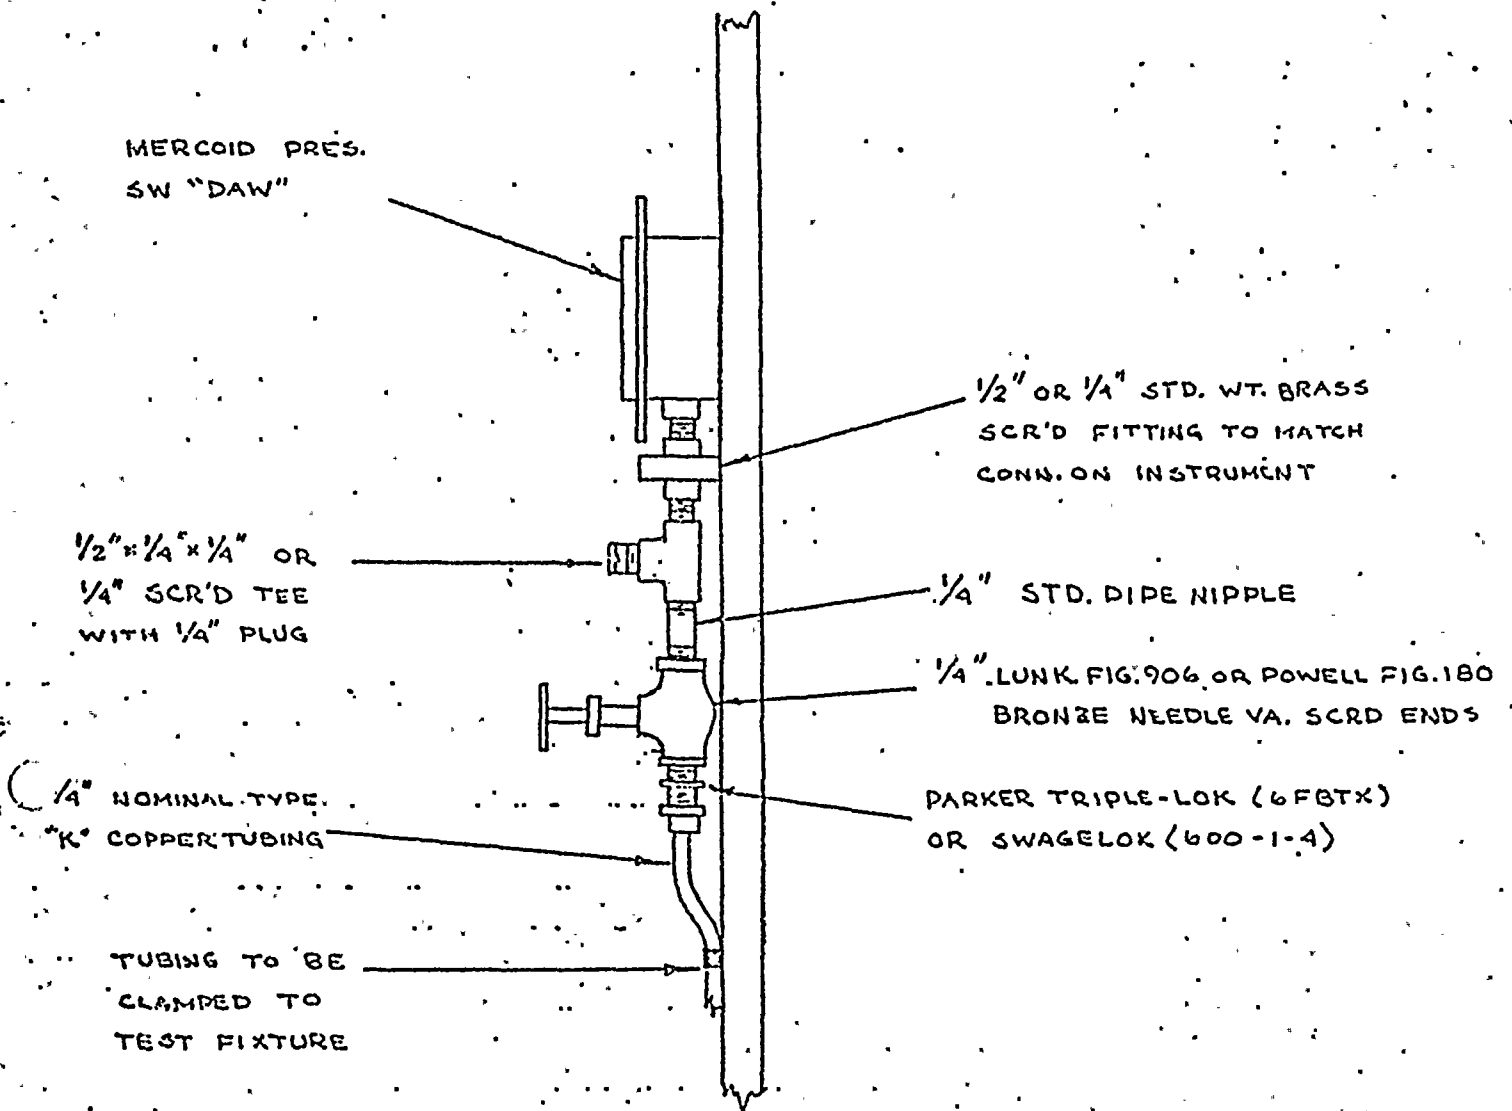 MERCOID PRES.
SW "DAW"
1/2" OR 1/4" STD. WT. BRASS
SCR'D FITTING TO MATCH
CONN. ON INSTRUMENT
1/2" x 1/4" x 1/4" OR
1/4" SCR'D TEE
WITH 1/4" PLUG
1/4" STD. PIPE NIPPLE
1/4" LUNK. FIG. 906 OR POWELL FIG. 180
BRONZE NEEDLE VA. SCRD ENDS
1/4" NOMINAL TYPE
"K" COPPER TUBING
PARKER TRIPLE-LOK (6FBTX)
OR SWAGELOK (600-1-4)
TUBING TO BE
CLAMPED TO
TEST FIXTURE